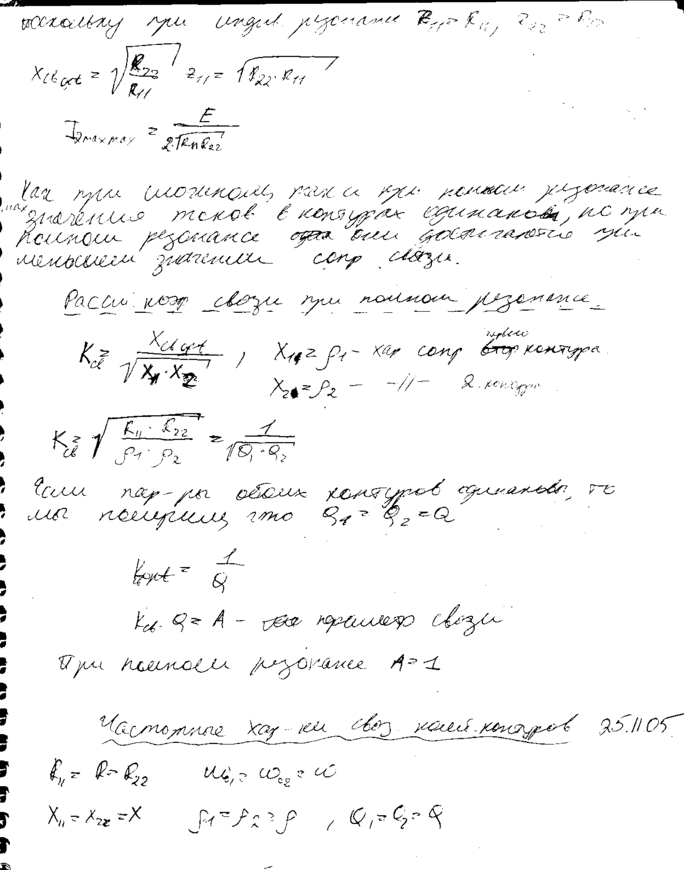 поскольку при индив. резонансе Z₁₁=R₁₁, Z₂₂=R₂₂
Xсв opt = √(R₂₂/R₁₁) Z₁₁ = √(R₂₂·R₁₁)
I₂maxmax = E/(2√(R₁₁R₂₂))
Как при сложном, так и при полном резонансе
max значения токов в контурах одинаковы, но при
полном резонансе они достигаются при
меньшем значении сопр связи.
Рассм. коэф связи при полном резонансе
Kсв = Xсв opt/√(X₁₁·X₂₂), X₁₁=ρ₁ - хар сопр первого контура
X₂₂=ρ₂ - -//- 2 контура
Kсв = √((R₁₁·R₂₂)/(ρ₁·ρ₂)) = 1/√(Q₁·Q₂)
Если пар-ры обоих контуров одинаковы, то
мы получим, что Q₁=Q₂=Q
Kopt = 1/Q
Kсв·Q = A - параметр связи
При полном резонансе A=1
Частотные хар-ки связ. колеб. контуров 25.11.05
R₁₁=R=R₂₂ ω₀₁=ω₀₂=ω
X₁₁=X₂₂=X ρ₁=ρ₂=ρ, Q₁=Q₂=Q